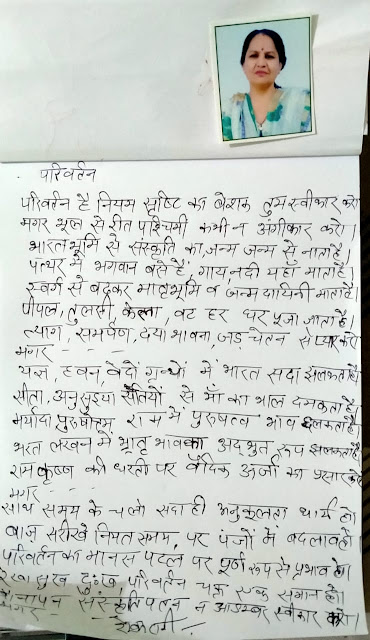 परिवर्तन
परिवर्तन है नियम सृष्टि का बेशक तुम स्वीकार करो
मगर भूल से रीत पाश्चिमी कभी न अंगीकार करो।
भारत भूमि से संस्कृति का, जन्म जन्म से नाता है
पत्थर में भगवान बसे हैं, गाय, नदी यहाँ माता है।
स्वर्ग से बढ़कर मातृभूमि व जन्मदायिनी माता है।
पीपल, तुलसी, केला, वट हर घर पूजा जाता है।
त्याग, समर्पण, दया भावना, जड़ चेतन से प्यार करो
मगर - - - -
यज्ञ, हवन, वेदों ग्रन्थों में भारत सदा झलकता है
सीता, अनुसुइया सतियों से माँ का भाल दमकता है
मर्यादा पुरुषोत्तम राम में पुरुषत्व भाव झलकता है
भरत लखन में भ्रातृ भाव का अद्भुत रूप झलकता है
राम कृष्ण की धरती पर वैदिक ऊर्जा का प्रसार करो
मगर - - - -
साथ समय के चलो सदा ही अनुकूलता धार्य हो।
बाज़ सरीखे नियत समय, पर पंजों में बदलाव हो।
परिवर्तन का मानस पटल पर पूर्ण रूप से प्रभाव हो।
सुख दुःख परिवर्तन चक्र एक समान हो।
संस्कृति पतन न आडम्बर स्वीकार करो।
मगर